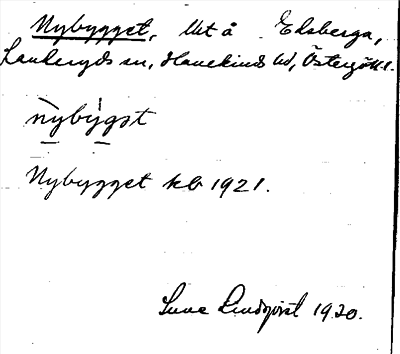 Nybygget, lht å Edsberga,
Landeryds sn, Hanekinds hd, Östergötl.
nybygst
Nybygget kb 1921.
Sune Lindqvist 1920.